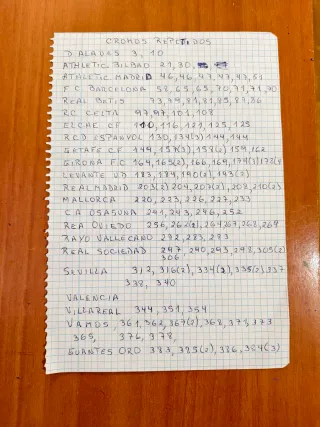 CROMOS REPETIDOS
D ALAVES 3, 10
ATHLETIC BILBAO 21, 30,
ATHLETIC MADRID 46, 46, 47, 47, 47, 51
F C BARCELONA 58, 65, 65, 70, 71, 71, 70
REAL BETIS 73, 79, 81, 81, 85, 81, 86
RC CELTA 97, 97, 101, 108
ELCHE CF 110, 116, 121, 125, 125
RCD ESPANYOL 130, 134(3) 144, 144
GETAFE CF 149, 157(3), 158(2) 159, 162
GIRONA FC 164, 165(2), 166, 169, 174(3) 178(4
LEVANTE UD 183, 189, 190(2), 193(2)
REAL MADRID 203(2) 204, 207(2), 208, 210(2)
MALLORCA 220, 223, 226, 227, 233
C.A OSASUNA 241, 243, 246, 252
REA OVIEDO 256, 262(2), 264, 267, 268, 269
RAYO VALLECANO 282, 283, 283
REAL SOCIEDAD 297, 240, 293, 298, 305(2)
306
SEVILLA 312, 316(2), 334(2), 335(2), 337
338, 340
VALENCIA
VILLAREAL 344, 351, 354
VAMOS, 361, 362, 367(2), 368, 371, 373
365, 376, 378,
GUANTES ORO 383, 385(2), 386, 384(3)